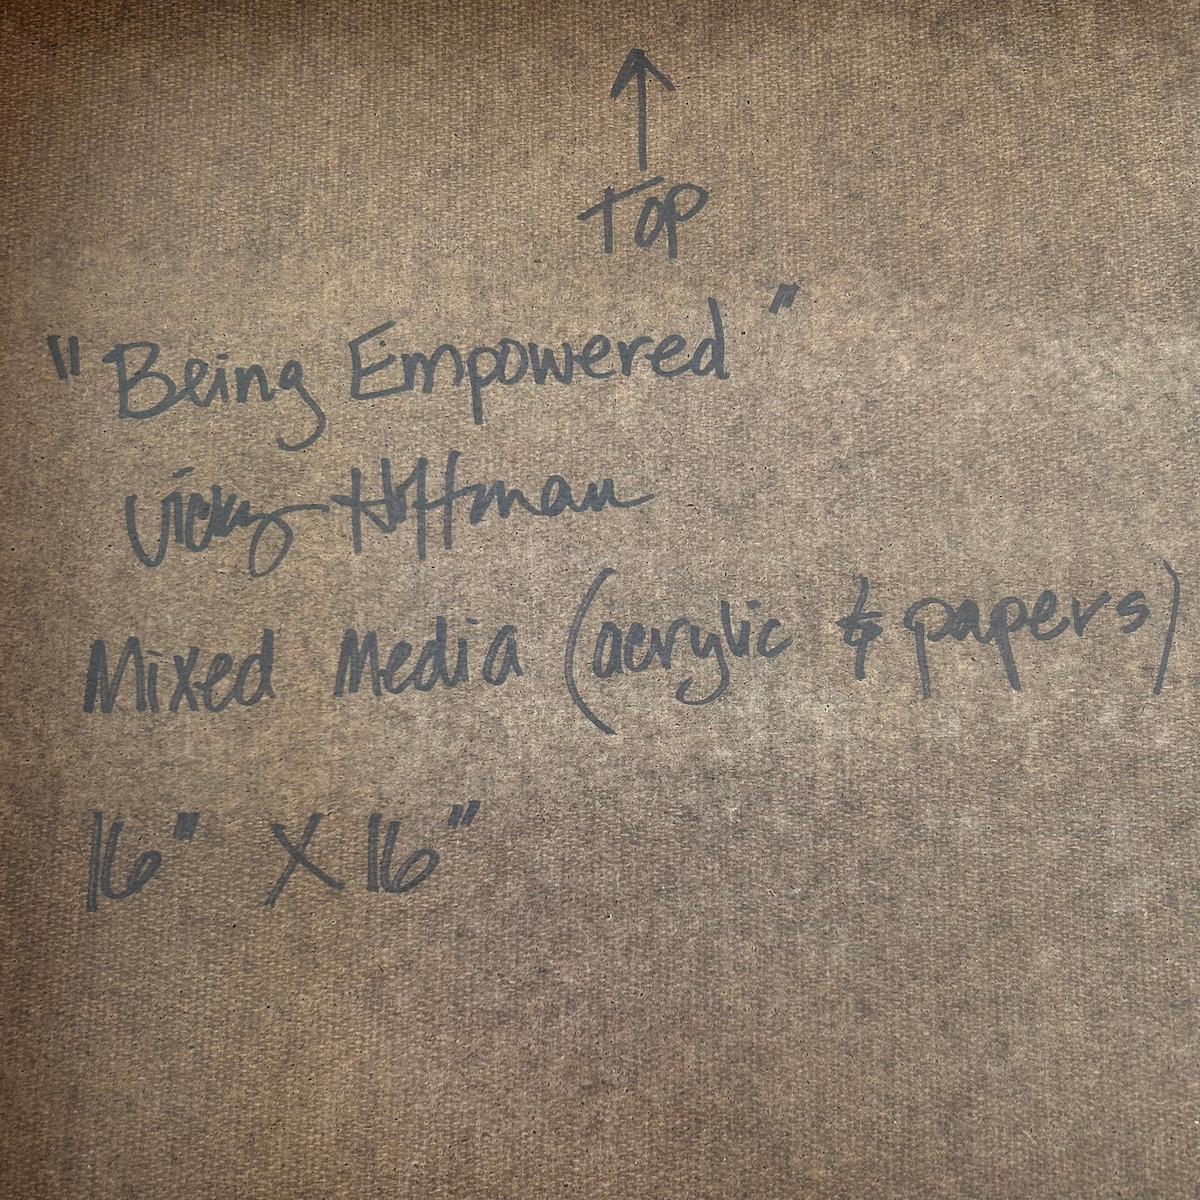 ↑
TOP
"Being Empowered"
Vicky Hoffman
Mixed Media (acrylic & papers)
16" X 16"